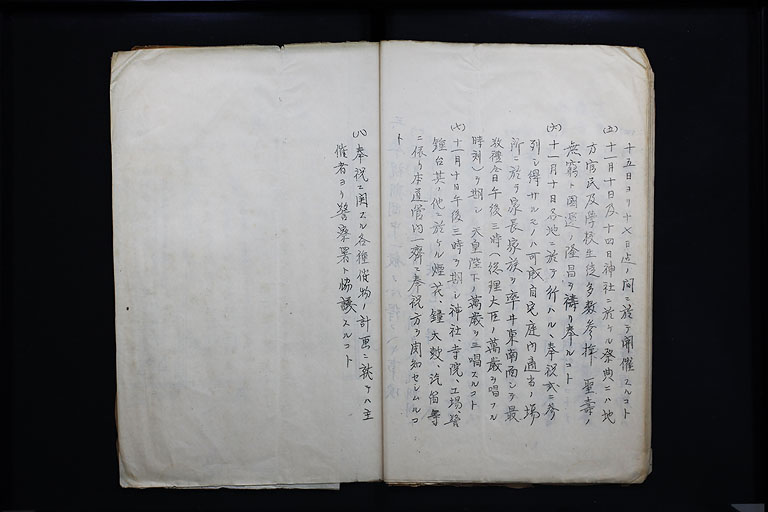 十五日ヨリ十七日迄ノ間ニ於テ開催スルコト
(五)十一月十日及十四日神社ニ於ケル祭典ニハ地
方官民及学校生徒多数参拝 聖壽ノ
無窮ト國運ノ隆昌ヲ祷リ奉ルコト
(六)十一月十日各地ニ於テ行ハルヽ奉祝式ニ参
列シ得サルモノハ可成自宅庭内適当ノ場
所ニ於テ家長家族ヲ率ヰ東南面シテ最
敬禮仝日午後三時(総理大臣ノ萬歳ヲ唱フル
時刻)ヲ期シ 天皇陛下ノ萬歳ヲ三唱スルコト
(七)十一月十日午後三時ヲ期シ神社、寺院、工場、警
鐘台其ノ他ニ於ケル煙花、鐘、太鼓、汽笛等
ニ依リ本道管内一齊ニ奉祝方ヲ周知セシムルコ
ト
(八)奉祝ニ関スル各種催物ノ計画ニ就テハ主
催者ヨリ警察署ト協議スルコト